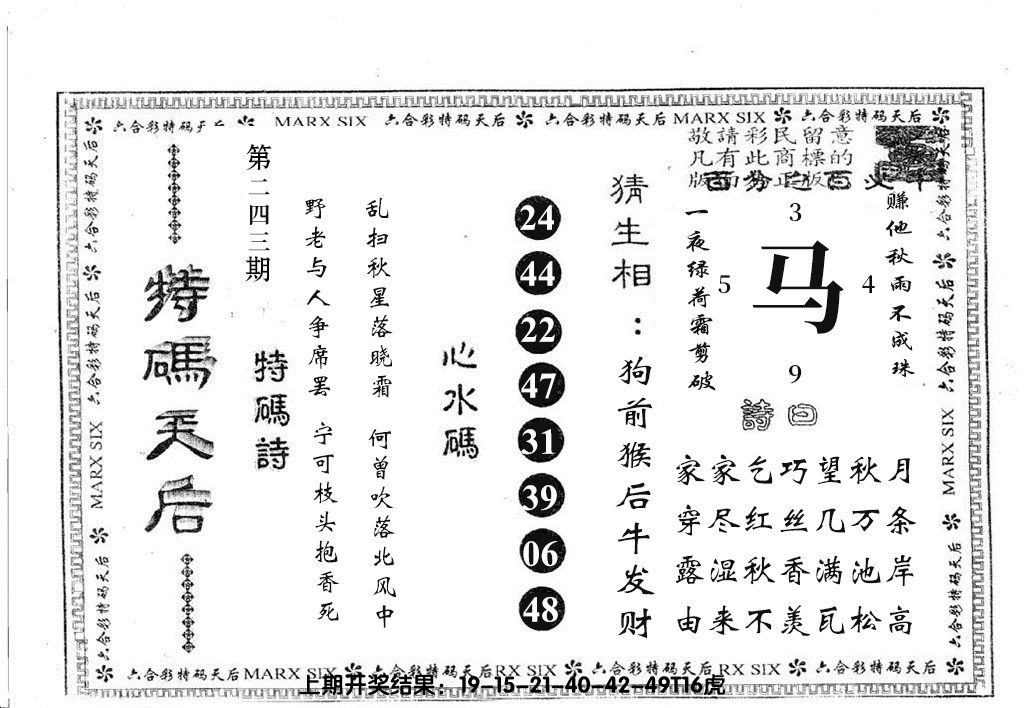 六合彩特码天后 MARX SIX 六合彩特码天后 六合彩特码天后 MARX SIX 六合彩特码天后
敬請彩民留意
凡有此商標的
特碼天后
第二四三期
特碼詩
野老与人争席罢 宁可枝头抱香死
乱扫秋星落晓霜 何曾吹落北风中
心水碼
24
44
22
47
31
39
06
48
猜生相:狗前猴后牛发财
一夜绿荷霜剪破
赚他秋雨不成珠
3
5 马 4
9
詩曰
家家乞巧望秋月
穿尽红丝几万条
露湿秋香满池岸
由来不羡瓦松高
六合彩特码天后 MARX SIX 六合彩特码天后
六合彩特码天后 MARX SIX 六合彩特码天后
六合彩特码天后 MARX SIX 六合彩特码天后 RX SIX 六合彩特码天后 RX SIX 六合彩特码天后
上期开奖结果: 19-15-21-40-42-49T16虎